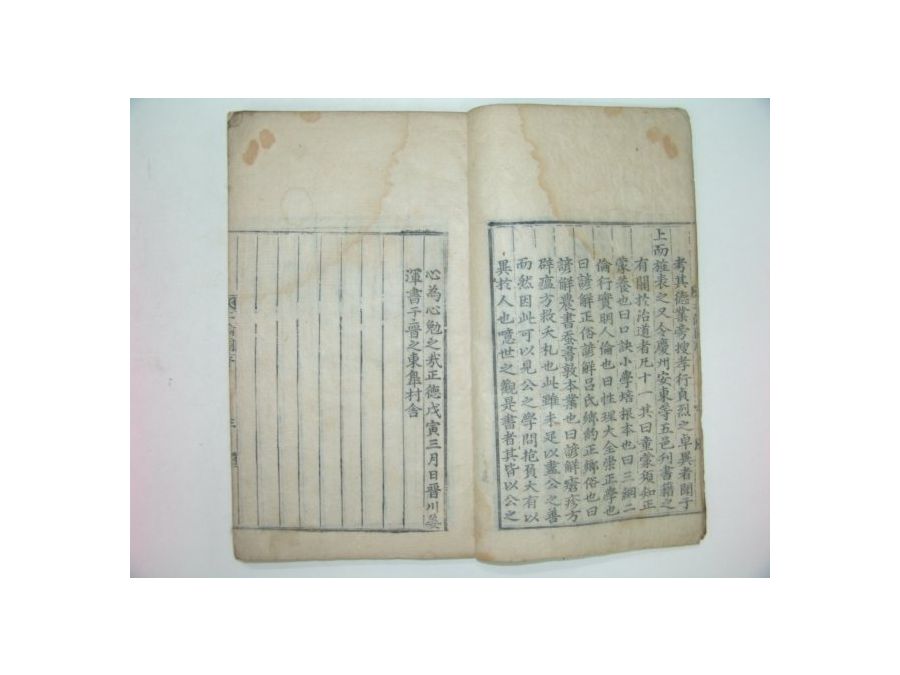 考其德業旁搜孝行貞烈之卓異者聞于
上而旌表之又令慶州安東等五邑刊書籍之
有關於治道者凡十一其曰童蒙須知正
蒙養也曰口訣小學培根本也曰三綱二
倫行實明人倫也曰性理大全崇正學也
曰諺解正俗諺解呂氏鄉約正鄉俗也曰
諺解農書蚕書敦本業也曰諺解瘡疹方
辟瘟方救夭札也此雖未足以盡公之善
而然因此可以見公之學問抱負大有以
異於人也噫世之觀是書者其皆以公之
心為心勉之㢤正德戊寅三月日晉川姜
渾書于晉之東皐村舍
二倫圖序
三